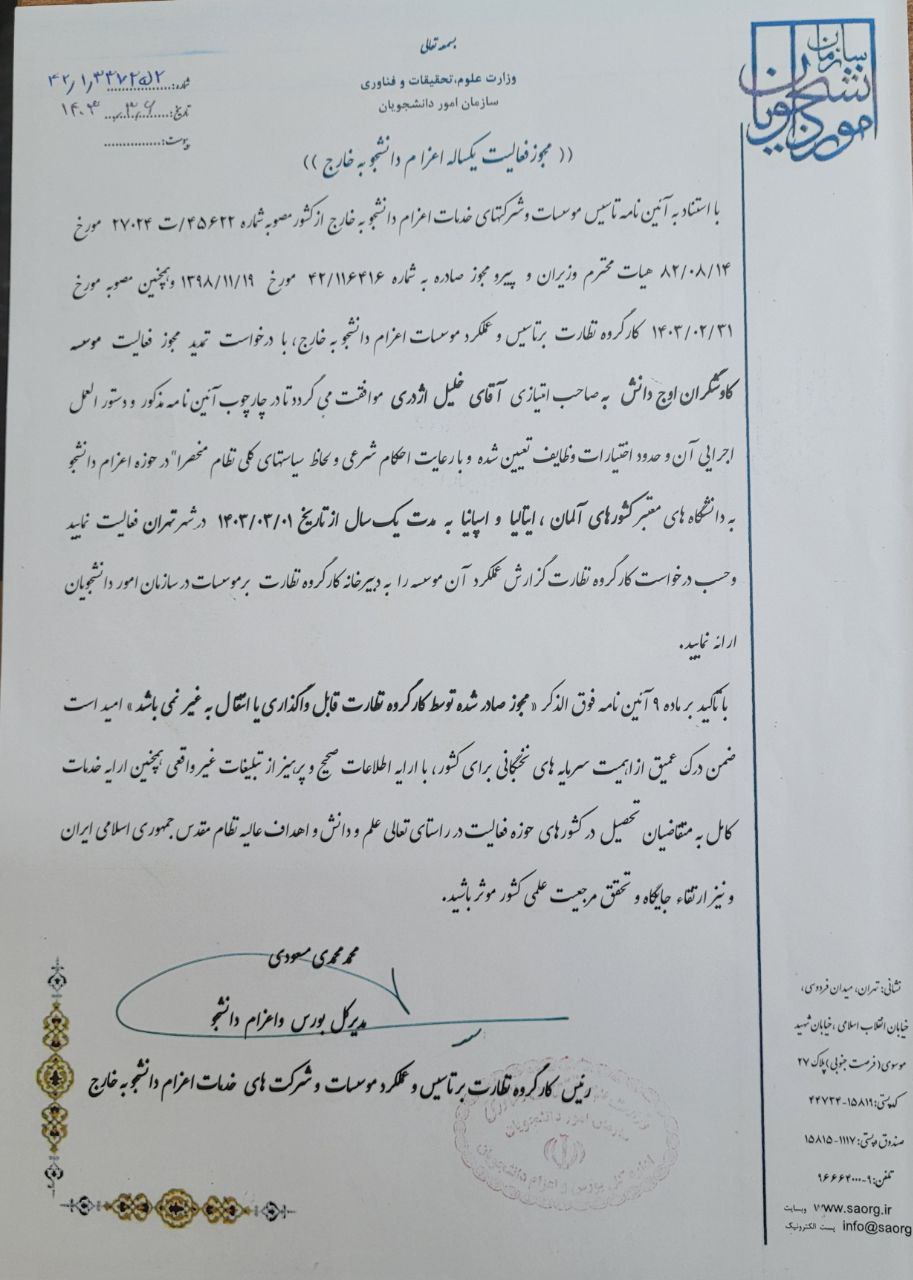 بسمه تعالی
وزارت علوم، تحقیقات و فناوری
سازمان امور دانشجویان
سازمان امور دانشجویان
شماره:
تاریخ:
پیوست:
(( مجوز فعالیت یکساله اعزام دانشجو به خارج ))
با استناد به آئین نامه تاسیس موسسات وشرکتهای خدمات اعزام دانشجو به خارج از کشور مصوبه شماره ۴۵۶۲۲/ت ۲۷۰۲۴ مورخ
۸۲/۰۸/۱۴ هیات محترم وزیران و پیرو مجوز صادره به شماره ۴۲/۱۱۶۴۱۶ مورخ ۱۳۹۸/۱۱/۱۹ وهمچنین مصوبه مورخ
۱۴۰۳/۰۲/۳۱ کارگروه نظارت برتاسیس و عملکرد موسسات اعزام دانشجو به خارج، با درخواست تمدید مجوز فعالیت موسسه
کاوشگران اوج دانش به صاحب امتیازی آقای خلیل اژدری موافقت می گردد تا در چارچوب آئین نامه مذکور و دستور العمل
اجرایی آن و حدود اختیارات وظایف تعیین شده و با رعایت احکام شرعی و لحاظ سیاستهای کلی نظام منحصرا" در حوزه اعزام دانشجو
به دانشگاه های معتبر کشورهای آلمان ، ایتالیا و اسپانیا به مدت یک سال از تاریخ ۱۴۰۳/۰۳/۰۱ در شهر تهران فعالیت نمایید
وحسب درخواست کارگروه نظارت گزارش عملکرد آن موسسه را به دبیرخانه کارگروه نظارت برموسسات در سازمان امور دانشجویان
ارائه نمایید.
با تاکید بر ماده ۹ آئین نامه فوق الذکر « مجوز صادر شده توسط کارگروه نظارت قابل واگذاری یا انتقال به غیر نمی باشد » امید است
ضمن درک عمیق از اهمیت سرمایه های نخبگانی برای کشور، با ارایه اطلاعات صحیح و پرهیز از تبلیغات غیر واقعی همچنین ارایه خدمات
کامل به متقاضیان تحصیل در کشورهای حوزه فعالیت در راستای تعالی علم و دانش و اهداف عالیه نظام مقدس جمهوری اسلامی ایران
و نیز ارتقاء جایگاه و تحقق مرجعیت علمی کشور موثر باشید.
محمد محمدی مسعودی
مدیرکل بورس واعزام دانشجو
رئیس کارگروه نظارت برتاسیس و عملکرد موسسات و شرکت های خدمات اعزام دانشجو به خارج
سازمان امور دانشجویان
اداره کل بورس و اعزام دانشجویان
نشانی: تهران، میدان فردوسی،
خیابان انقلاب اسلامی ،خیابان شهید
موسوی(فرصت جنوبی)پلاک ۲۷
کدپستی:۱۵۸۱۹-۴۴۷۳۴
صندوق پستی:۱۱۱۷-۱۵۸۱۵
تلفن:۹-۹۶۶۶۴۰۰۰
وبسایت www.saorg.ir
پست الکترونیک info@saorg